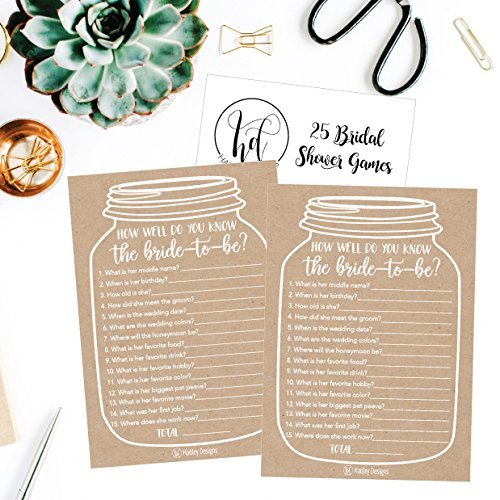 hd
25 Bridal
Shower Games
HOW WELL DO YOU KNOW
the bride-to-be?
1. What is her middle name?
2. When is her birthday?
3. How old is she?
4. How did she meet the groom?
5. When is the wedding date?
6. What are the wedding colors?
7. Where will the honeymoon be?
8. What is her favorite food?
9. What is her favorite drink?
10. What is her favorite hobby?
11. What is her favorite color?
12. What is her biggest pet peeve?
13. What is her favorite movie?
14. What was her first job?
15. Where does she work now?
TOTAL
hd Hadley Designs
HOW WELL DO YOU KNOW
the bride-to-be?
1. What is her middle name?
2. When is her birthday?
3. How old is she?
4. How did she meet the groom?
5. When is the wedding date?
6. What are the wedding colors?
7. Where will the honeymoon be?
8. What is her favorite food?
9. What is her favorite drink?
10. What is her favorite hobby?
11. What is her favorite color?
12. What is her biggest pet peeve?
13. What is her favorite movie?
14. What was her first job?
15. Where does she work now?
TOTAL
hd Hadley Designs